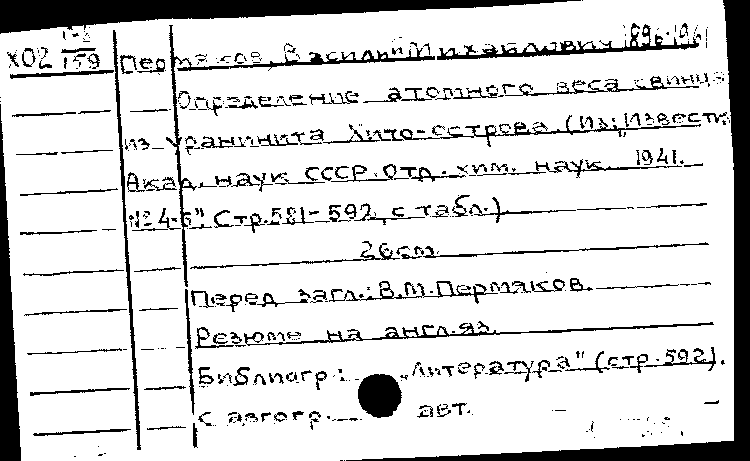 ХО2 159
Пермяков, Василий Михайлович 1896-1961
Определение атомного веса свинца
из уранинита Хито-острова. (Из: „Известия
Акад. наук СССР. Отд. хим. наук. 1941.
№ 4-5". Стр. 581-592, с табл.)
26 см.
Перед загл.: В.М. Пермяков.
Резюме на англ. яз.
Библиогр.: „Литература" (стр. 592).
С автогр. авт.